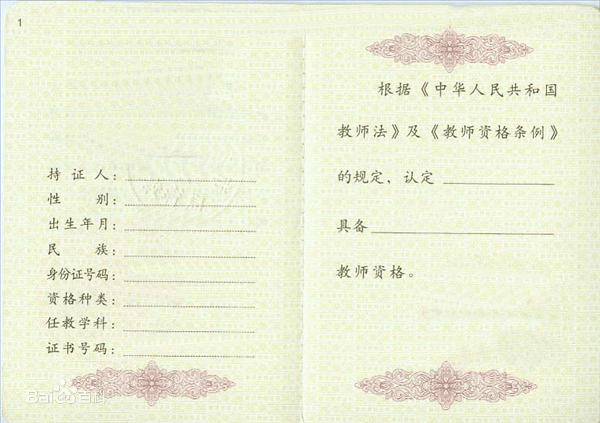 1
持证人：
性别：
出生年月：
民族：
身份证号码：
资格种类：
任教学科：
证书号码：
根据《中华人民共和国
教师法》及《教师资格条例》
的规定，认定
具备
教师资格。
Bai百科